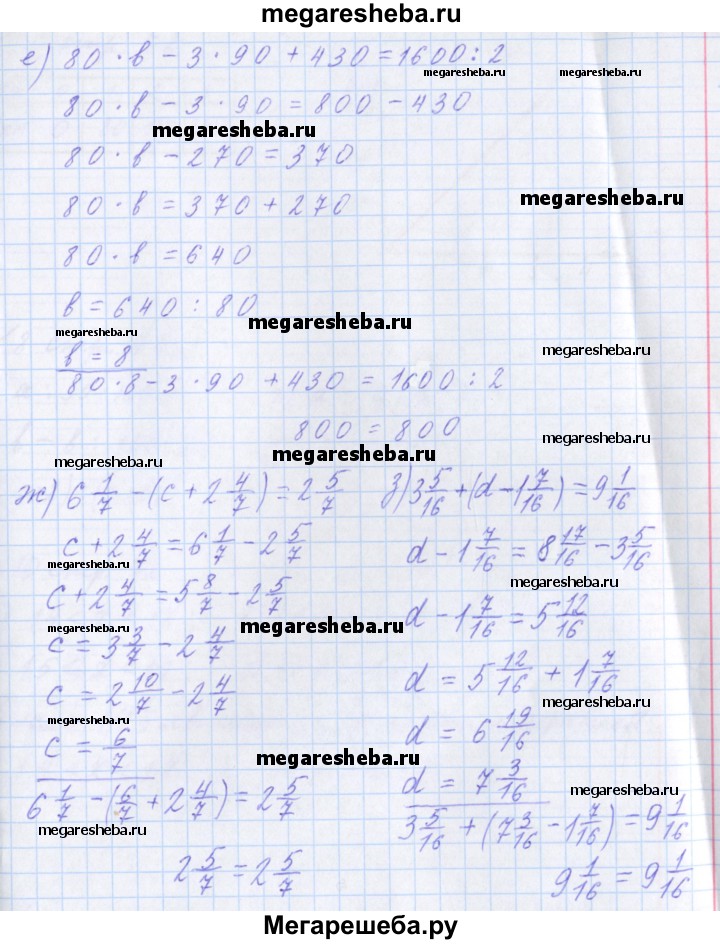 megaresheba.ru
е) 80 · в − 3 · 90 + 430 = 1600 : 2
megaresheba.ru
megaresheba.ru
80 · в − 3 · 90 = 800 − 430
megaresheba.ru
80 · в − 270 = 370
80 · в = 370 + 270
megaresheba.ru
80 · в = 640
в = 640 : 80
megaresheba.ru
megaresheba.ru
в = 8
megaresheba.ru
80 · 8 − 3 · 90 + 430 = 1600 : 2
megaresheba.ru
800 = 800
megaresheba.ru
megaresheba.ru
megaresheba.ru
ж) 6 1/7 − (с + 2 4/7) = 2 5/7
с + 2 4/7 = 6 1/7 − 2 5/7
megaresheba.ru
с + 2 4/7 = 5 8/7 − 2 5/7
megaresheba.ru
с = 3 3/7 − 2 4/7
megaresheba.ru
с = 2 10/7 − 2 4/7
megaresheba.ru
с = 6/7
megaresheba.ru
6 1/7 − (6/7 + 2 4/7) = 2 5/7
megaresheba.ru
2 5/7 = 2 5/7
з) 3 5/16 + (d − 1 7/16) = 9 1/16
d − 1 7/16 = 8 17/16 − 3 5/16
megaresheba.ru
d − 1 7/16 = 5 12/16
megaresheba.ru
d = 5 12/16 + 1 7/16
megaresheba.ru
d = 6 19/16
d = 7 3/16
megaresheba.ru
3 5/16 + (7 3/16 − 1 7/16) = 9 1/16
megaresheba.ru
9 1/16 = 9 1/16
Мегарешеба.ру